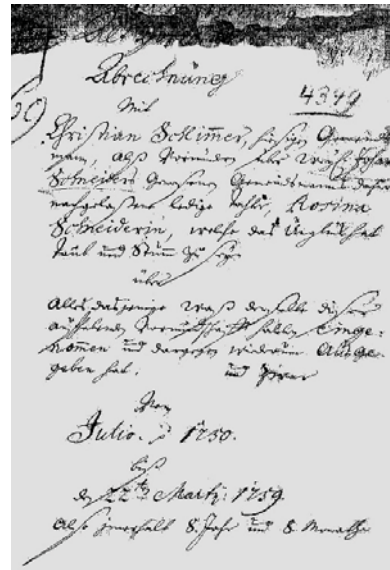 Abrechnung
4349
Mit
Christian Schlimmer, hiesigen Gemeinds
mann, alß Vormünder über weyl. Johan
Schneiders gewesenen Gemeindsmanns dahier
nachgelaßene ledige Tochter, Rosina
Schneiderin, welche das Unglück hat
taub und Stumm zu seyn
über
Alles dasjenige waß derselbe dießer
Vormundschafft halben Einge-
nommen und dargegen wiederum Ausge-
geben hat. und zwar
Von
Julio. 1750.
biß
d 22ten Martij: 1759
Also innerhalb 8. Jahr und 8. Monathe